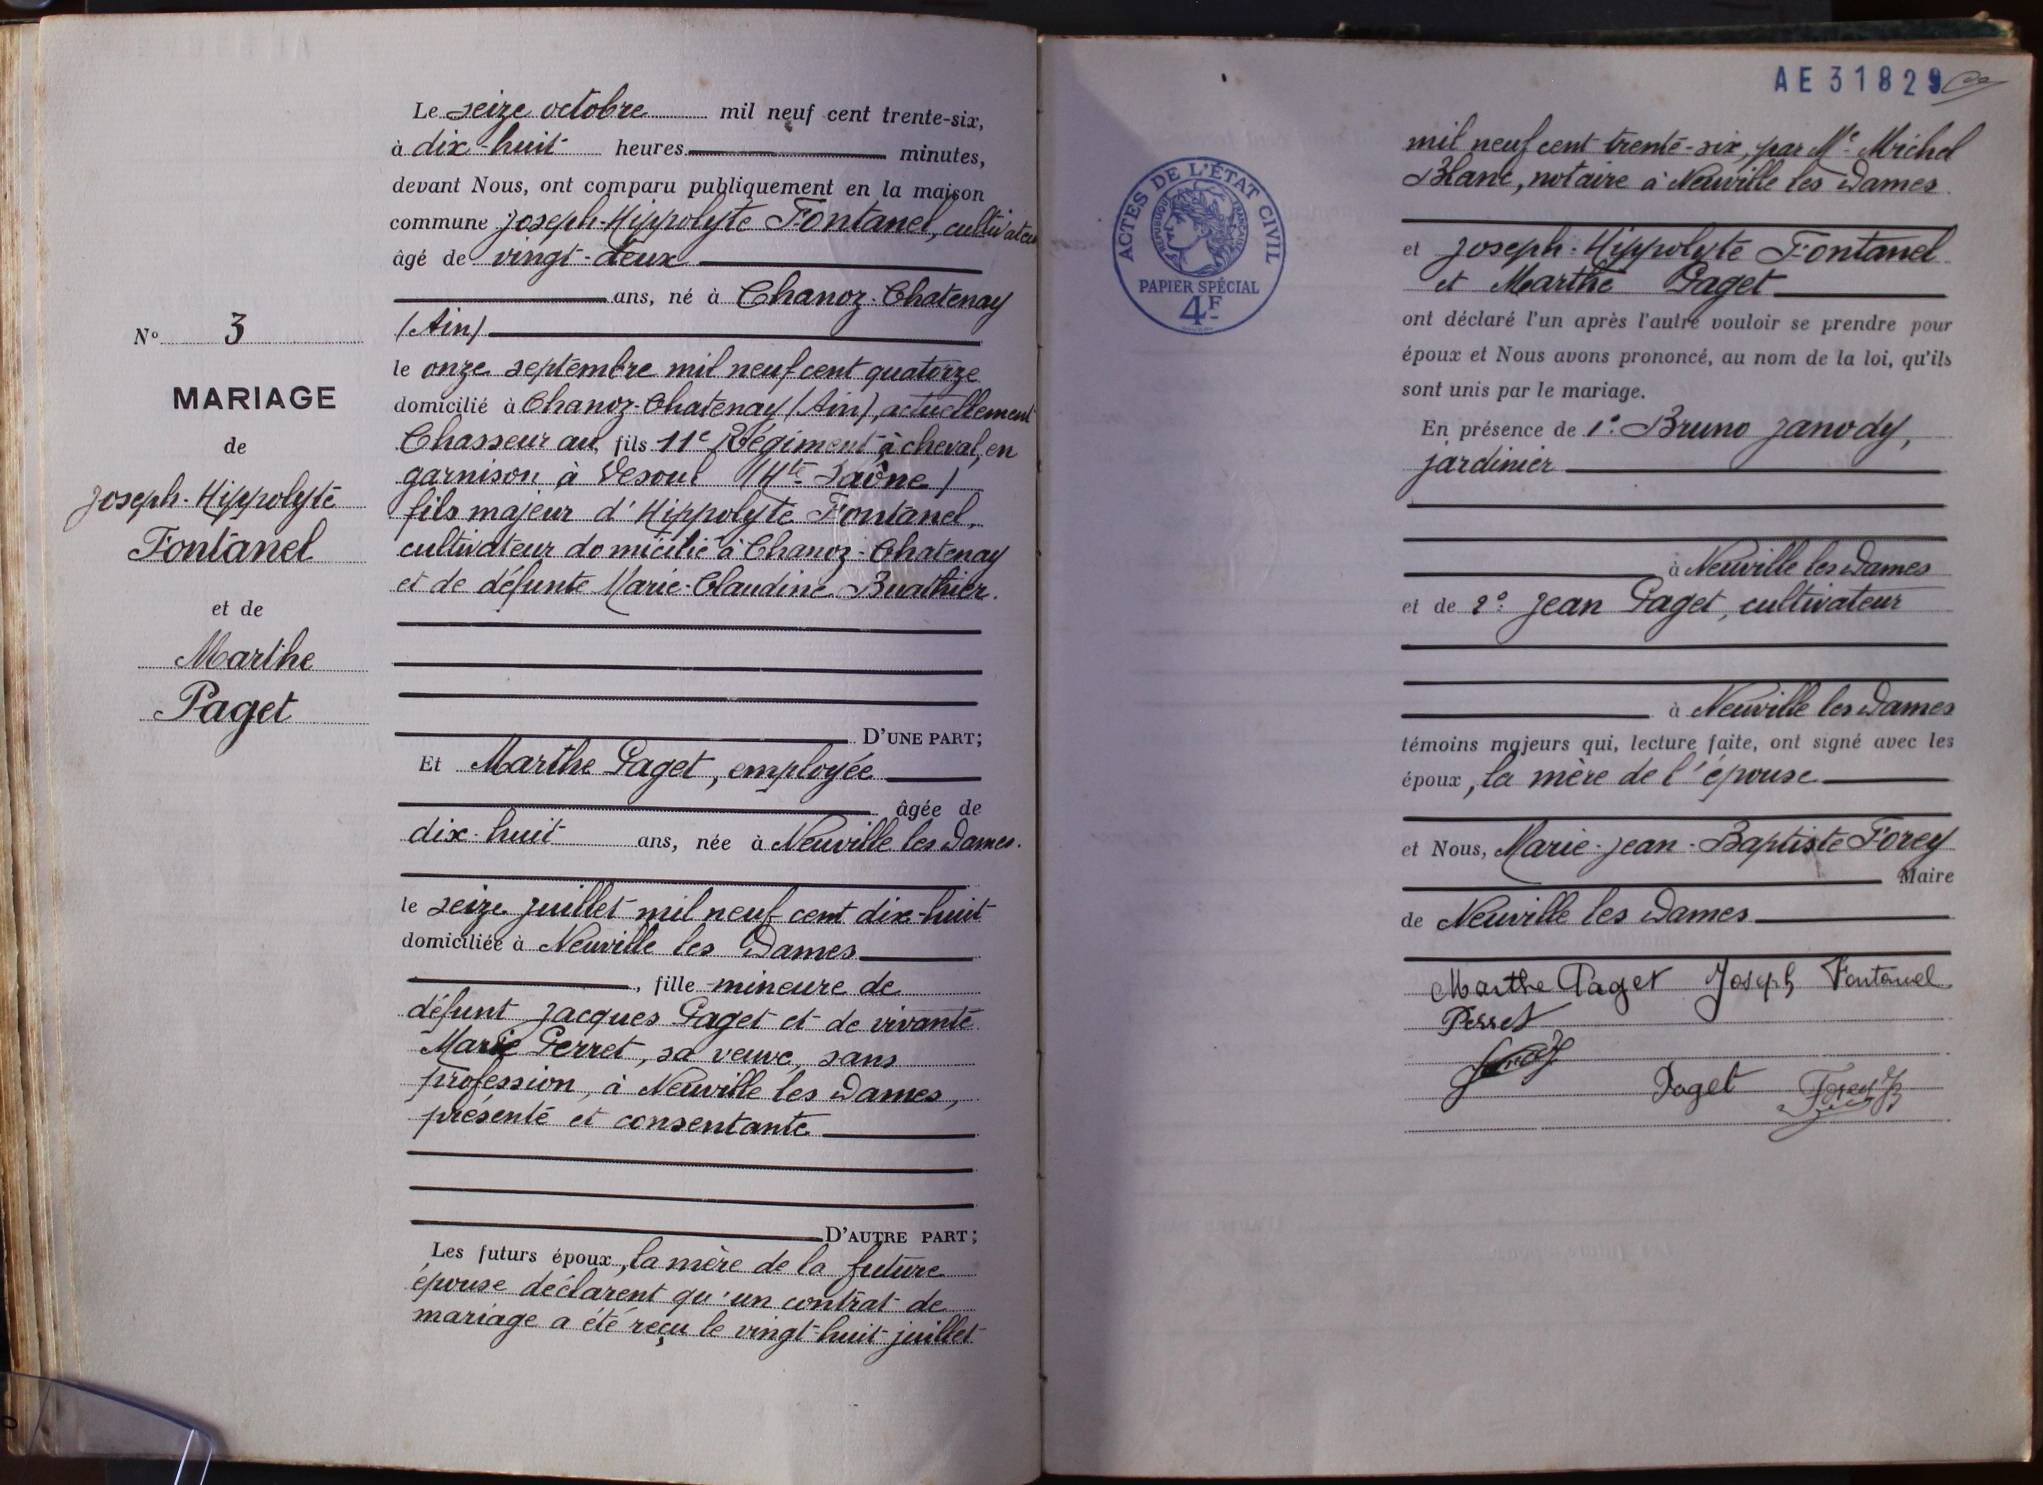 Le seize octobre mil neuf cent trente-six,
à dix-huit heures minutes,
devant Nous, ont comparu publiquement en la maison
commune Joseph-Hippolyte Fontanel, cultivateur
âgé de vingt-deux
ans, né à Chanoz-Chatenay
(Ain)
le onze septembre mil neuf cent quatorze
domicilié à Chanoz-Chatenay (Ain), actuellement
Chasseur au fils 11e Régiment à cheval, en
garnison à Vesoul (Hte Saône)
fils majeur d'Hippolyte Fontanel,
cultivateur domicilié à Chanoz-Chatenay
et de défunte Marie-Claudine Buathier.
D'UNE PART;
Et Marthe Paget, employée
âgée de
dix-huit ans, née à Neuville les Dames.
le seize juillet mil neuf cent dix-huit
domiciliée à Neuville les Dames
, fille mineure de
défunt Jacques Paget et de vivante
Marie Perret, sa veuve, sans
profession, à Neuville les Dames,
présente et consentante
D'AUTRE PART;
Les futurs époux, la mère de la future
épouse déclarent qu'un contrat de
mariage a été reçu le vingt-huit juillet
No 3
MARIAGE
de
Joseph-Hippolyte
Fontanel
et de
Marthe
Paget
AE31829
ACTES DE L'ÉTAT CIVIL
RÉPUBLIQUE FRANÇAISE
PAPIER SPÉCIAL
4F
mil neuf cent trente-six, par Me Michel
Blanc, notaire à Neuville les Dames.
et Joseph-Hippolyte Fontanel
et Marthe Paget
ont déclaré l'un après l'autre vouloir se prendre pour
époux et Nous avons prononcé, au nom de la loi, qu'ils
sont unis par le mariage.
En présence de 1o: Bruno Janody,
jardinier
à Neuville les Dames
et de 2o: Jean Paget, cultivateur
à Neuville les Dames
témoins majeurs qui, lecture faite, ont signé avec les
époux, la mère de l'épouse
et Nous, Marie-Jean-Baptiste Forey
Maire
de Neuville les Dames
Marthe Paget Joseph Fontanel
Perret
Janody
Paget Forey JB